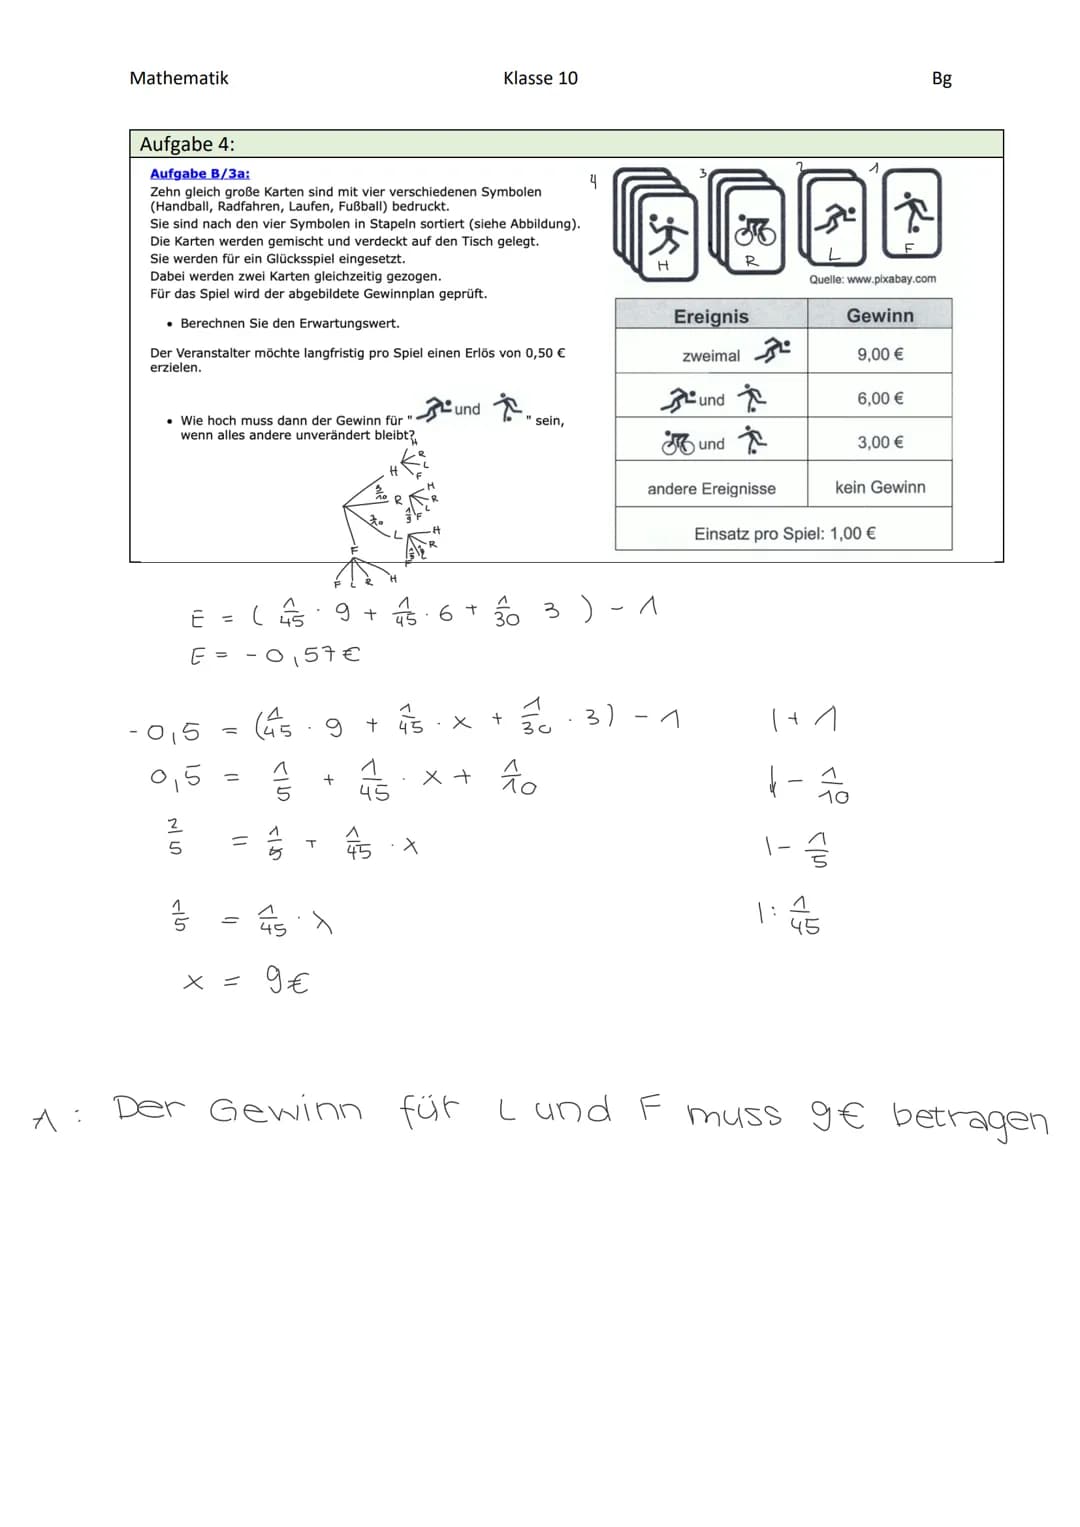 Mathematik Klasse 10 Bg
Aufgabe 4:
Aufgabe B/3a:
Zehn gleich große Karten sind mit vier verschiedenen Symbolen
(Handball, Radfahren, Laufen, Fußball) bedruckt.
Sie sind nach den vier Symbolen in Stapeln sortiert (siehe Abbildung).
Die Karten werden gemischt und verdeckt auf den Tisch gelegt.
Sie werden für ein Glücksspiel eingesetzt.
Dabei werden zwei Karten gleichzeitig gezogen.
Für das Spiel wird der abgebildete Gewinnplan geprüft.
• Berechnen Sie den Erwartungswert.
Der Veranstalter möchte langfristig pro Spiel einen Erlös von 0,50 €
erzielen.
• Wie hoch muss dann der Gewinn für " und " sein,
wenn alles andere unverändert bleibt?
4 3 2 1
H R L F
Quelle: www.pixabay.com
Ereignis Gewinn
zweimal 9,00 €
und 6,00 €
und 3,00 €
andere Ereignisse kein Gewinn
Einsatz pro Spiel: 1,00 €
H R L F
H
3/10 R
H R L F
1/3
L
H R
F
F L R H
E = ( 1/45 · 9 + 1/45 · 6 + 1/30 3 ) - 1
E = - 0,57€
-0,5 = (1/45 · 9 + 1/45 · x + 1/30 · 3) - 1 | + 1
0,5 = 1/5 + 1/45 · x + 1/10 | - 1/10
2/5 = 1/5 + 1/45 · x | - 1/5
1/5 = 1/45 · x | : 1/45
x = 9€
A: Der Gewinn für L und F muss 9€ betragen